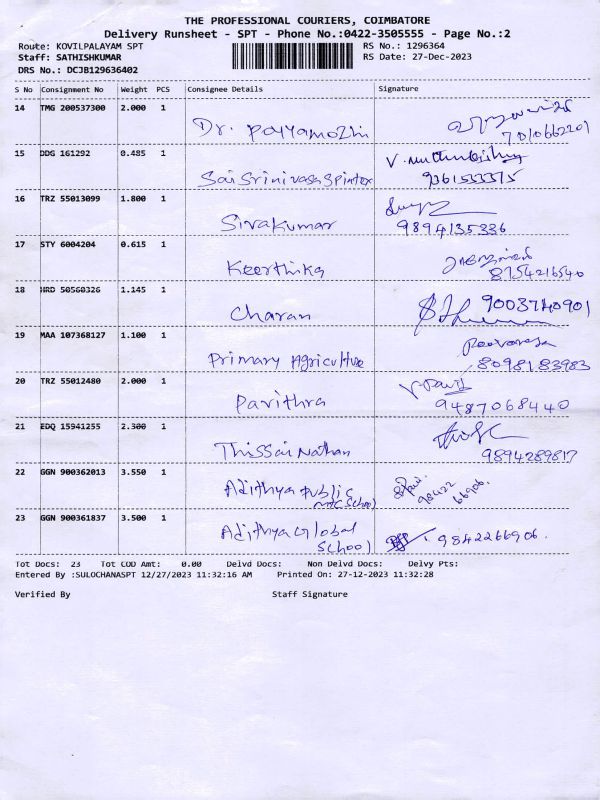 THE PROFESSIONAL COURIERS, COIMBATORE
Delivery Runsheet - SPT - Phone No.:0422-3505555 - Page No.:2
Route: KOVILPALAYAM SPT RS No.: 1296364
Staff: SATHISHKUMAR RS Date: 27-Dec-2023
DRS No.: DCJB129636402
S No Consignment No Weight PCS Consignee Details Signature
14 TMG 200537300 2.000 1
Dr. Payyamozhi 7010662201
15 DDG 161292 0.485 1
Sai Srinivasa Spintex 9361533375
16 TRZ 55013099 1.800 1
Sivakumar 9894135336
17 STY 6004204 0.615 1
Keerthika 8754216540
18 HRD 50560326 1.145 1
Charan 9003740901
19 MAA 107368127 1.100 1
Primary Agriculture 8098183983
20 TRZ 55012480 2.000 1
Pavithra 9487068440
21 EDQ 15941255 2.300 1
Thissai Nathan 9894289817
22 GGN 900362013 3.550 1
Adithya Public School 98422 66906.
23 GGN 900361837 3.500 1
Adithya Global School 9842266906.
Tot Docs: 23 Tot COD Amt: 0.00 Delvd Docs: Non Delvd Docs: Delvy Pts:
Entered By :SULOCHANASPT 12/27/2023 11:32:16 AM Printed On: 27-12-2023 11:32:28
Verified By Staff Signature